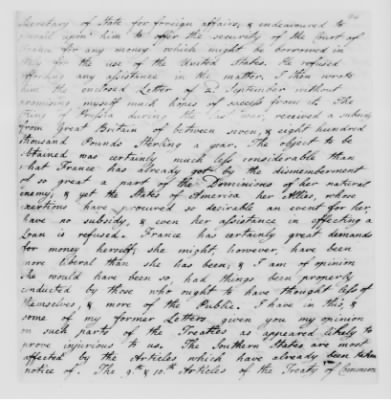 Secretary of State for foreign affairs, & endeavoured to
prevail upon him to offer the security of the Court of
France for any money which might be borrowed in
Italy for the use of the United States. He refused
affording any assistance in the matter. I then wrote
him the enclosed Letter of 2d September without
promising myself much hopes of success from it. The
King of Prussia during the last war, received a subsidy
from Great Britain of between seven, & eight hundred
thousand Pounds Sterling a year. The object to be
obtained was certainly much less considerable than
what France has already got by the dismemberment
of so great a part of the Dominions of her natural
enemy, & yet the States of America her Allies, whose
exertions have procured so desirable an event for her,
have no subsidy, & even her assistance in effecting a
Loan is refused. France has certainly great demands
for money herself, she might, however, have been
more liberal than she has been; & I am of opinion
she would have been so, had things been properly
conducted by those who ought to have thought less of
themselves, & more of the Public. I have in this, &
some of my former Letters, given you my opinion
on such parts of the Treaties as appeared likely to
prove injurious to us. The Southern States are most
affected by the Articles which have already been taken
notice of. The 9th & 10th Articles of the Treaty of Commerce